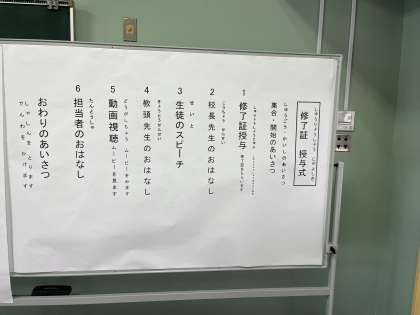 修了証 授与式
しゅうごう・かいしのあいさつ
集合・開始のあいさつ
1 修了証授与
こうちょう せんせい
2 校長先生のおはなし
せいと
3 生徒のスピーチ
きょうとうせんせい
4 教頭先生のおはなし
どうがしちょう ムービーをみます
5 動画視聴 ムービーを見ます
たんとうしゃ
6 担当者のおはなし
おわりのあいさつ
しゃしんを とります
でんわを かけます